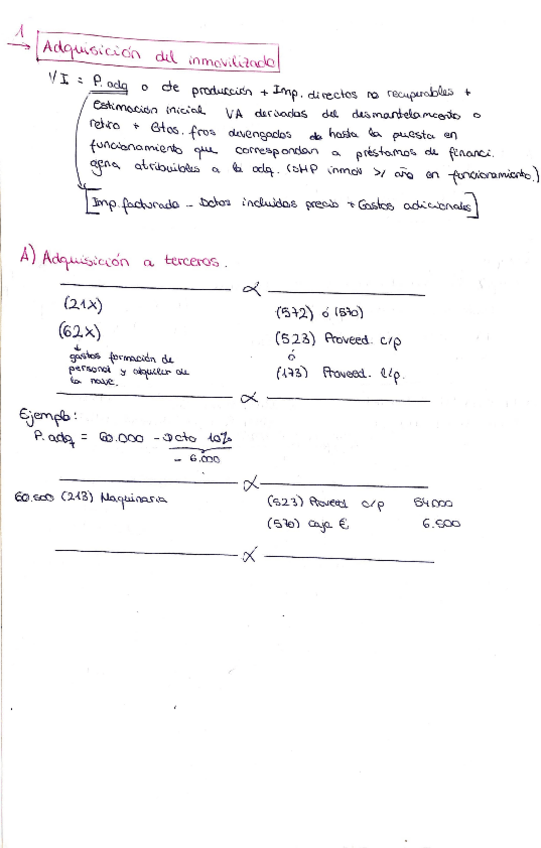 1
Adquisición del inmovilizado
VI = P. adq o cte producción + Imp. directos no recuperables +
Estimación inicial VA derivadas del desmantelamiento o
retiro + Gtos. fros devengados hasta la puesta en
funcionamiento que correspondan a préstamos de financi.
gena atribuibles a la adq. (SHP inmov >/ año en funcionamiento.)
[Imp. facturado - Dctos incluidos precio + Gastos adicionales]
A) Adquisición a terceros.
(21X) (572) ó (570)
(62X) (523) Proveed. c/p
gastos formación de ó
personal y alquiler de (173) Proveed. l/p.
la nave.
Ejemplo:
P. adq = 60.000 - Dcto 10%
- 6.000
60.500 (213) Maquinaria (523) Proveed c/p 54000
(570) Caja € 6.500